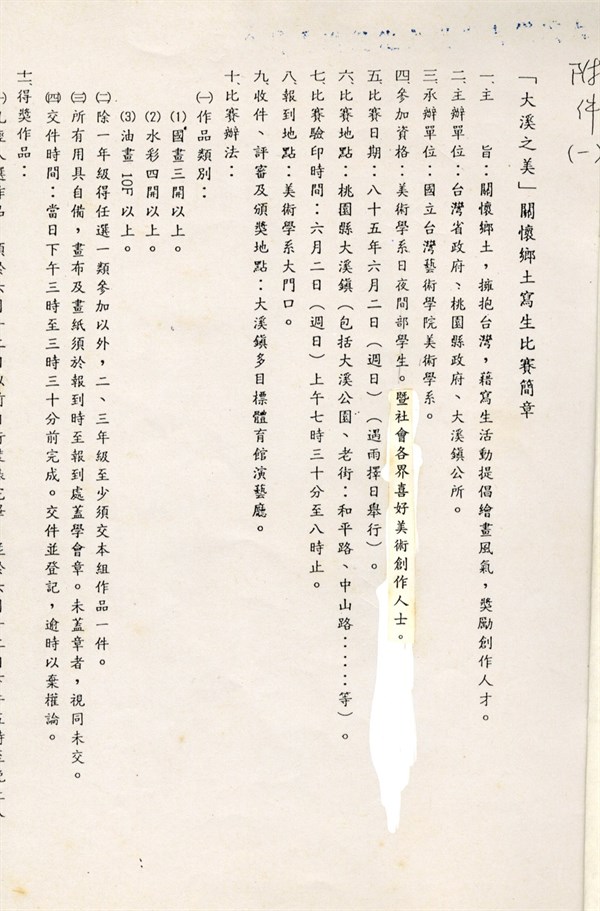 附件(一)
「大溪之美」關懷鄉土寫生比賽簡章
一、主　　旨：關懷鄉土，擁抱台灣，藉寫生活動提倡繪畫風氣，獎勵創作人才。
二、主辦單位：台灣省政府、桃園縣政府、大溪鎮公所。
三、承辦單位：國立台灣藝術學院美術學系。
四、參加資格：美術學系日夜間部學生。暨社會各界喜好美術創作人士。
五、比賽日期：八十五年六月二日（週日）（遇雨擇日舉行）。
六、比賽地點：桃園縣大溪鎮（包括大溪公園、老街：和平路、中山路……等）。
七、比賽驗印時間：六月二日（週日）上午七時三十分至八時止。
八、報到地點：美術學系大門口。
九、收件、評審及頒獎地點：大溪鎮多目標體育館演藝廳。
十、比賽辦法：
㈠作品類別：
⑴國畫三開以上。
⑵水彩四開以上。
⑶油畫10F以上。
㈡除一年級得任選一類參加以外，二、三年級至少須交本組作品一件。
㈢所有用具自備，畫布及畫紙須於報到時至報到處蓋學會章。未蓋章者，視同未交。
㈣交件時間：當日下午三時至三時三十分前完成。交件並登記，逾時以棄權論。
十一、得獎作品：